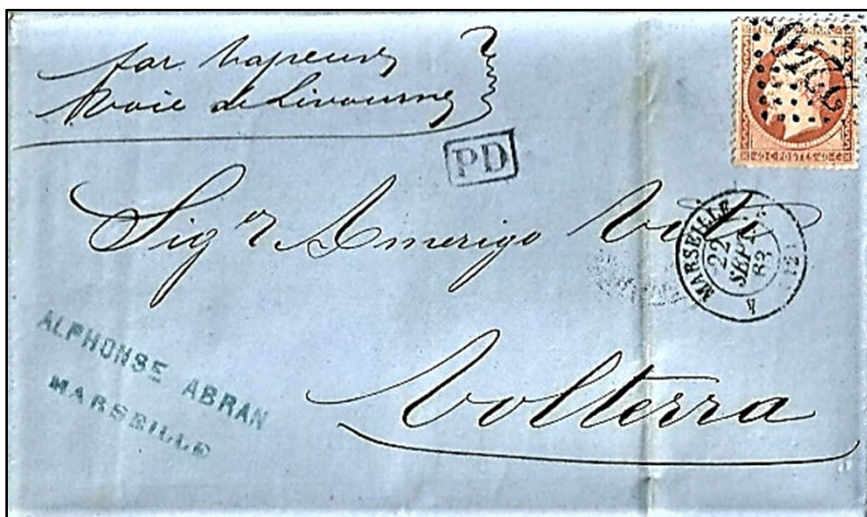 par vapeur
Voie de Livourne
2240
PD
Sigr Amerigo
MARSEILLE
22
SEPT
63
(12)
ALPHONSE ABRAN
MARSEILLE
Volterra